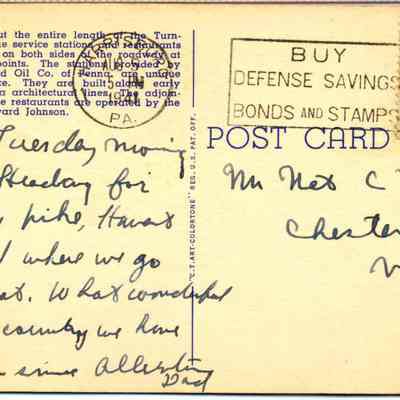 ut the entire length of the Turn-
e service stations and restaurants
on both sides of the roadway at
points. The stations provided by
d Oil Co. of Penna. are unique
ce. They are built along early
a architectural lines. The adjoin-
e restaurants are operated by the
ard Johnson.
AUG 5
1941
PA.
BUY
DEFENSE SAVINGS
BONDS AND STAMPS
POST CARD
"C.T. ART-COLORTONE" REG. U.S. PAT. OFF.
Tuesday morning
Heading for
pike, Haven't
where we go
at. What wonderful
country we have
since
Dad
Mr Nat C
Chester
V